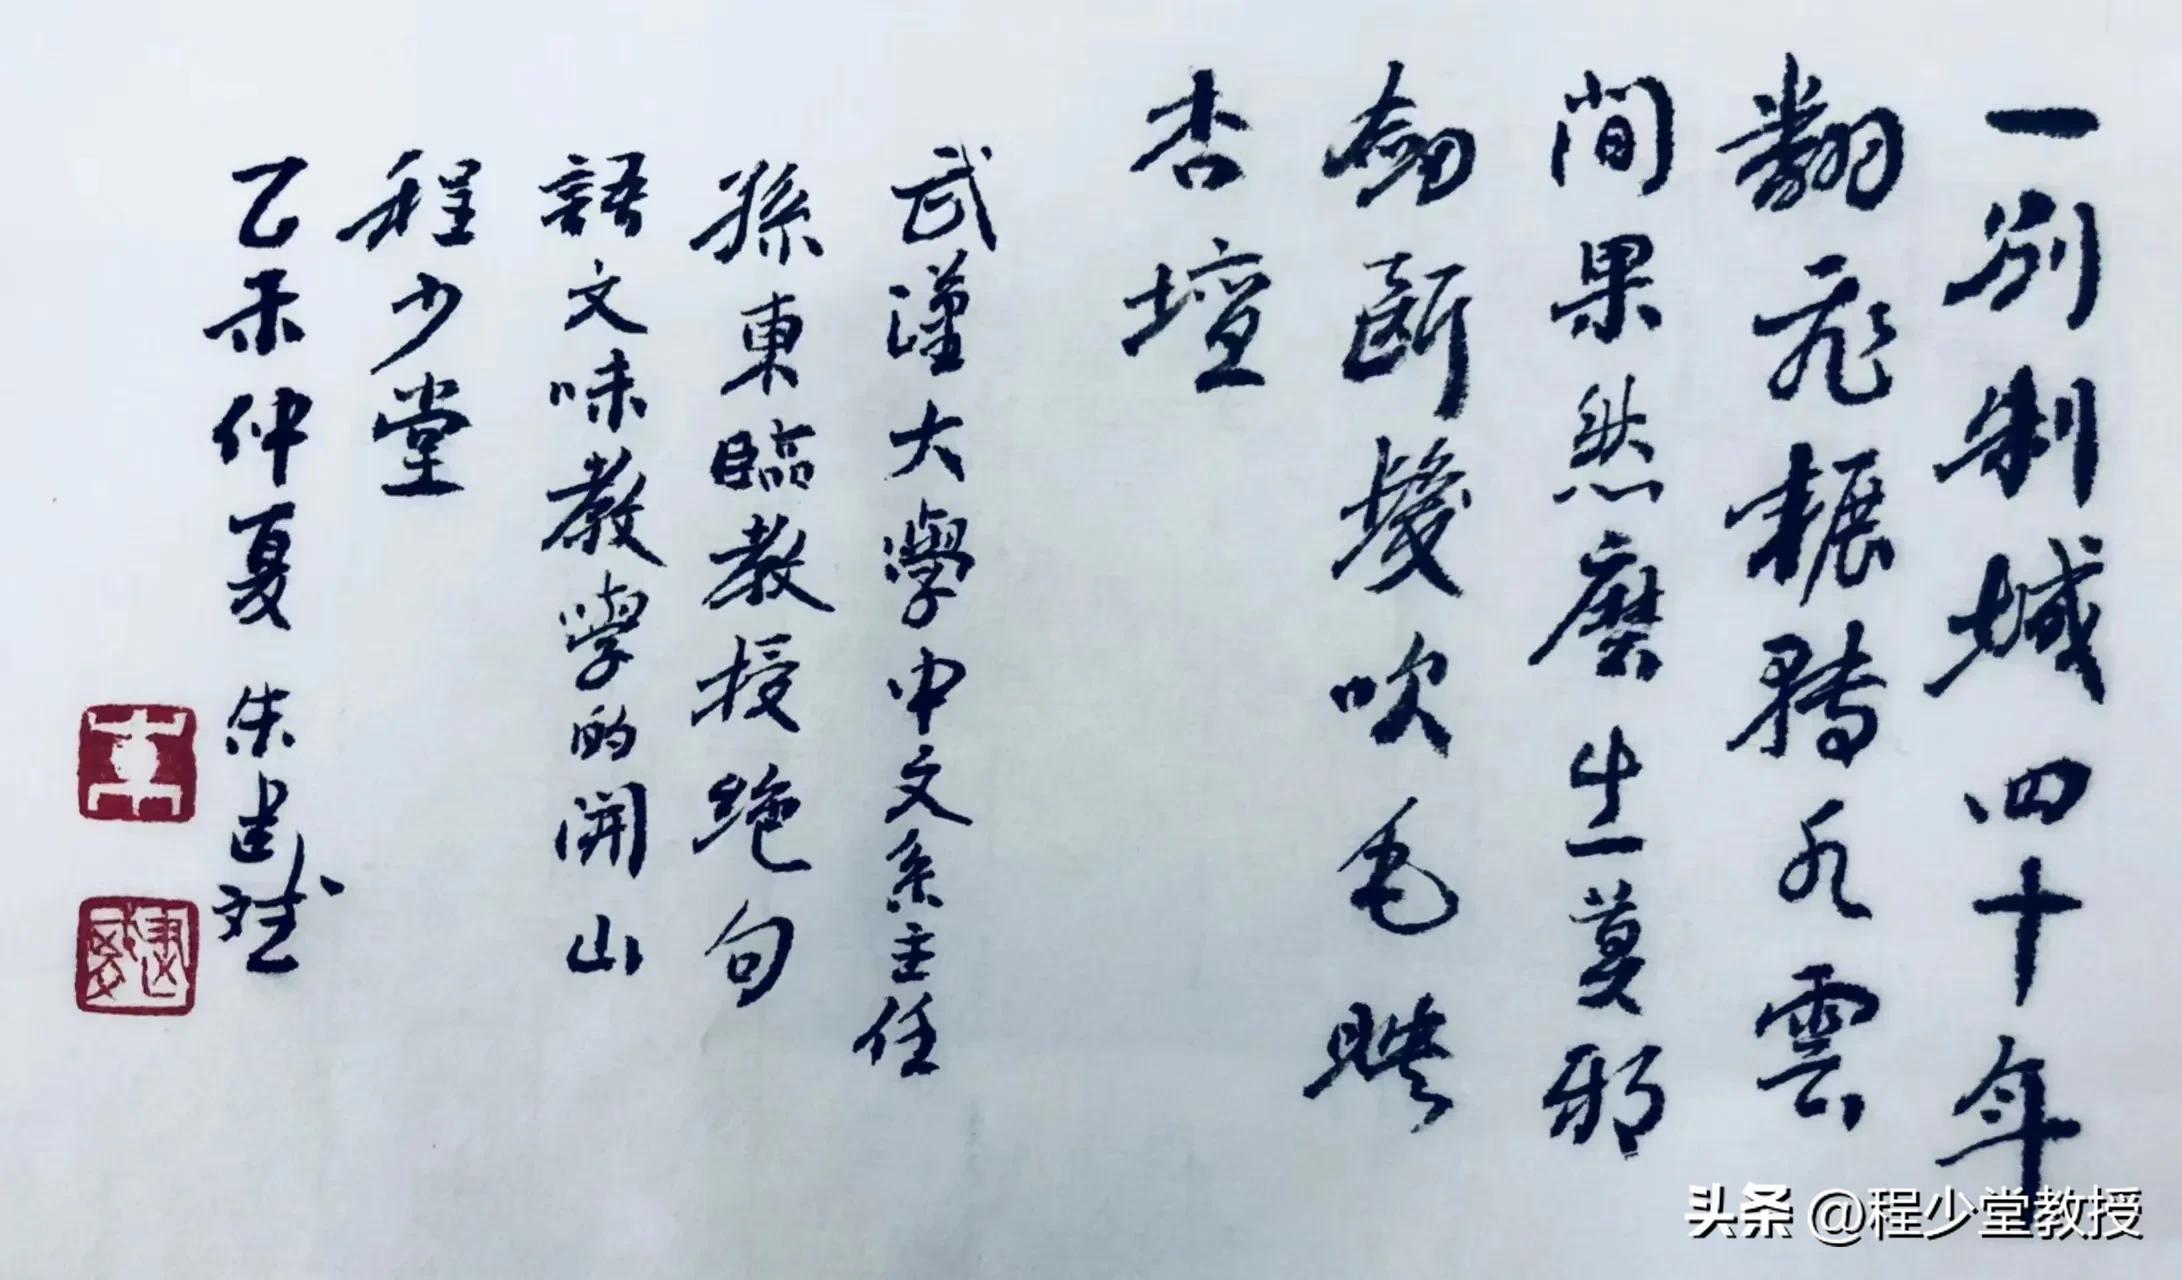 一别制城四十年
翻飛輾轉水雲
間果然磨出莫邪
劍斷髮吹毛映
杏壇
武漢大學中文系主任
孫東臨教授絕句
語文味教學的開山
程少堂
乙未仲夏 朱建斌
头条 @程少堂教授